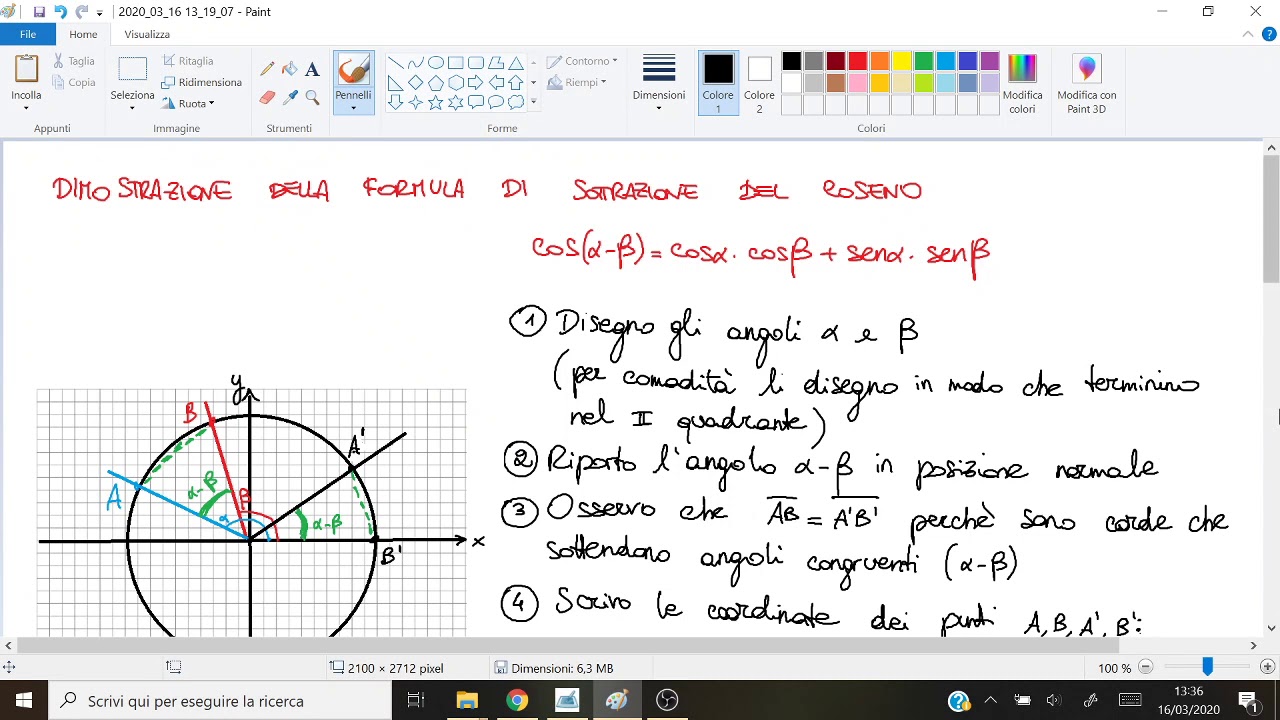 2020_03_16 13_19_07 - Paint
File Home Visualizza
Incolla
Taglia
Copia
Appunti
Seleziona
Ritaglia
Ridimensiona
Ruota
Immagine
Strumenti
Pennelli
Contorno
Riempi
Forme
Dimensioni
Colore 1
Colore 2
Modifica colori
Colori
Modifica con Paint 3D
DIMOSTRAZIONE DELLA FORMULA DI SOTTRAZIONE DEL COSENO
cos(α-β) = cosα · cosβ + senα · senβ
① Disegno gli angoli α e β
(per comodità li disegno in modo che terminino
nel II quadrante)
② Riporto l'angolo α-β in posizione normale
③ Osservo che AB = A'B' perchè sono corde che
sottendono angoli congruenti (α-β)
④ Scrivo le coordinate dei punti A, B, A', B':
y
B
A'
A
α-β
β
α
α-β
x
B'
2100 × 2712 pixel
Dimensioni: 6,3 MB
100 %
Scrivi qui per eseguire la ricerca
13:36
16/03/2020
1